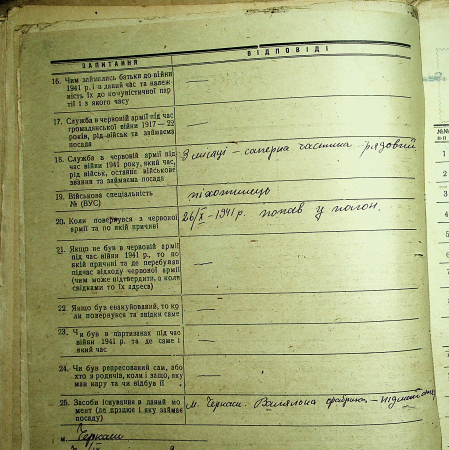 ЗАПИТАННЯ
ВІДПОВІДІ
16. Чим займались батьки до війни
1941 р. і в даний час та належ-
ність їх до комуністичної пар
тії і з якого часу
—
17. Служба в червоній армії під час
громадянської війни 1917—22
років, рід військ та займаєма
посада
—
18. Служба в червоній армії під
час війни 1941 року, який час,
рід військ, останнє військове
звання та займаєма посада
3 місяці – саперна частина – рядовий
19. Військова спеціальність
№ (ВУС)
піхотинець
20. Коли повернувся з червоної
армії та по якій причині
26/X – 1941 р. попав у полон.
21. Якщо не був в червоній армії
під час війни 1941 р., то по
якій причині та де перебував
підчас відходу червоної армії
(чим може підтвердити, а коли
свідками то їх адреса)
—
22. Якщо був евакуйований, то ко
ли повернувся та звідки саме
—
23. Чи був в партизанах під час
війни 1941 р. та де саме і
який час
—
24. Чи був репресований сам, або
хто з родичів, коли і защо, яку
мав кару та чи відбув її
—
25. Засоби існування в даний мо
мент (де працює і яку займає
посаду)
м. Черкаси. Валяльна фабрика –
м. Черкаси
№№
п-п
1
2
3
4
5
6
7
8